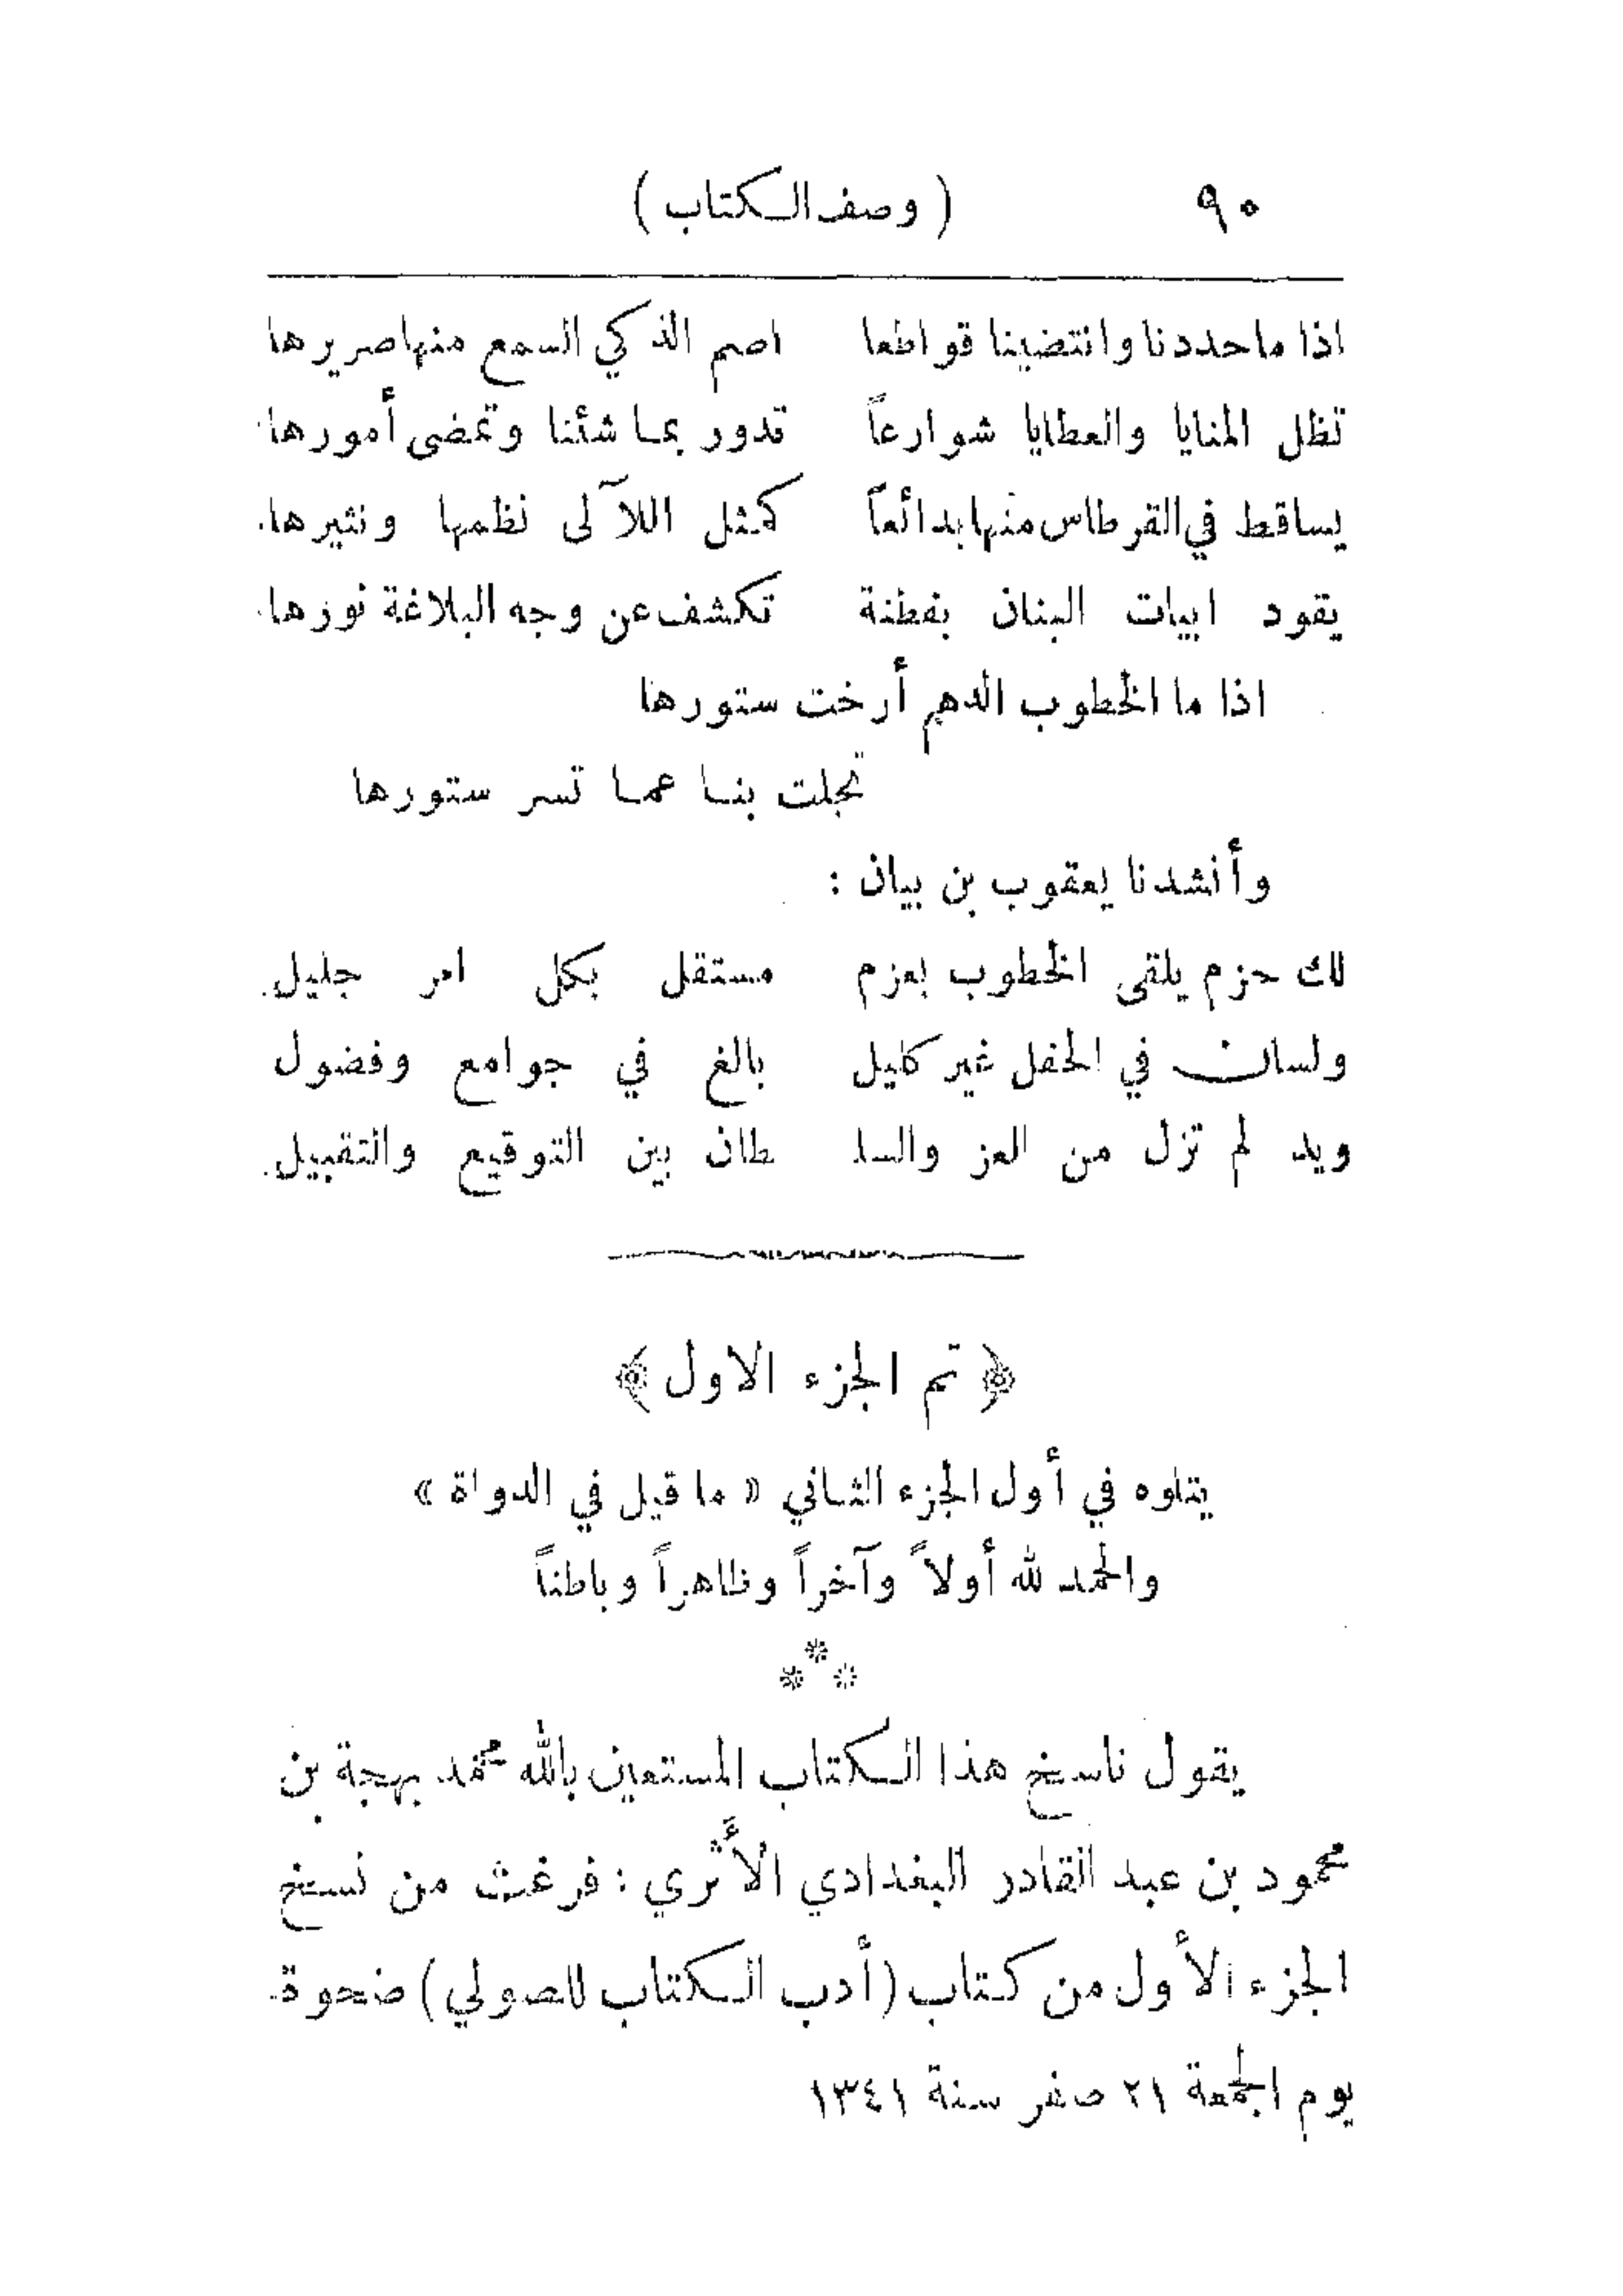 ٩٠ ( وصف الكتاب )
اذا ما حددنا وانتضينا قواطعا اصم الذكي السمع منها صريرها
تظل المنايا والعطايا شوارعاً تدور بما شئنا وتمضى أمورها
يساقط في القرطاس منها بدائعاً كمثل اللآلى نظمها ونثيرها
يقود ابيات البنان بفطنة تكشف عن وجه البلاغة نورها
اذا ما الخطوب الدهم أرخت ستورها
تجلت بنا عما تسر ستورها
وأنشدنا يعقوب بن بيان :
لك حزم يلقى الخطوب بعزم مستقل بكل امر جليل
ولسان في الحفل غير كليل بالغ في جوامع وفضول
ويد لم تزل من العز والسلـ ـطان بين التوقيع والتقبيل
﴿ تم الجزء الاول ﴾
يتلوه في أول الجزء الثاني « ما قيل في الدواة »
والحمد لله أولاً وآخراً وظاهراً وباطناً
***
يقول ناسخ هذا الكتاب المستعين بالله محمد بهجة بن
محمود بن عبد القادر البغدادي الأَثري : فرغت من نسخ
الجزء الأول من كتاب (أدب الكتاب للصولي) ضحوة
يوم الجمعة ٢١ صفر سنة ١٣٤١